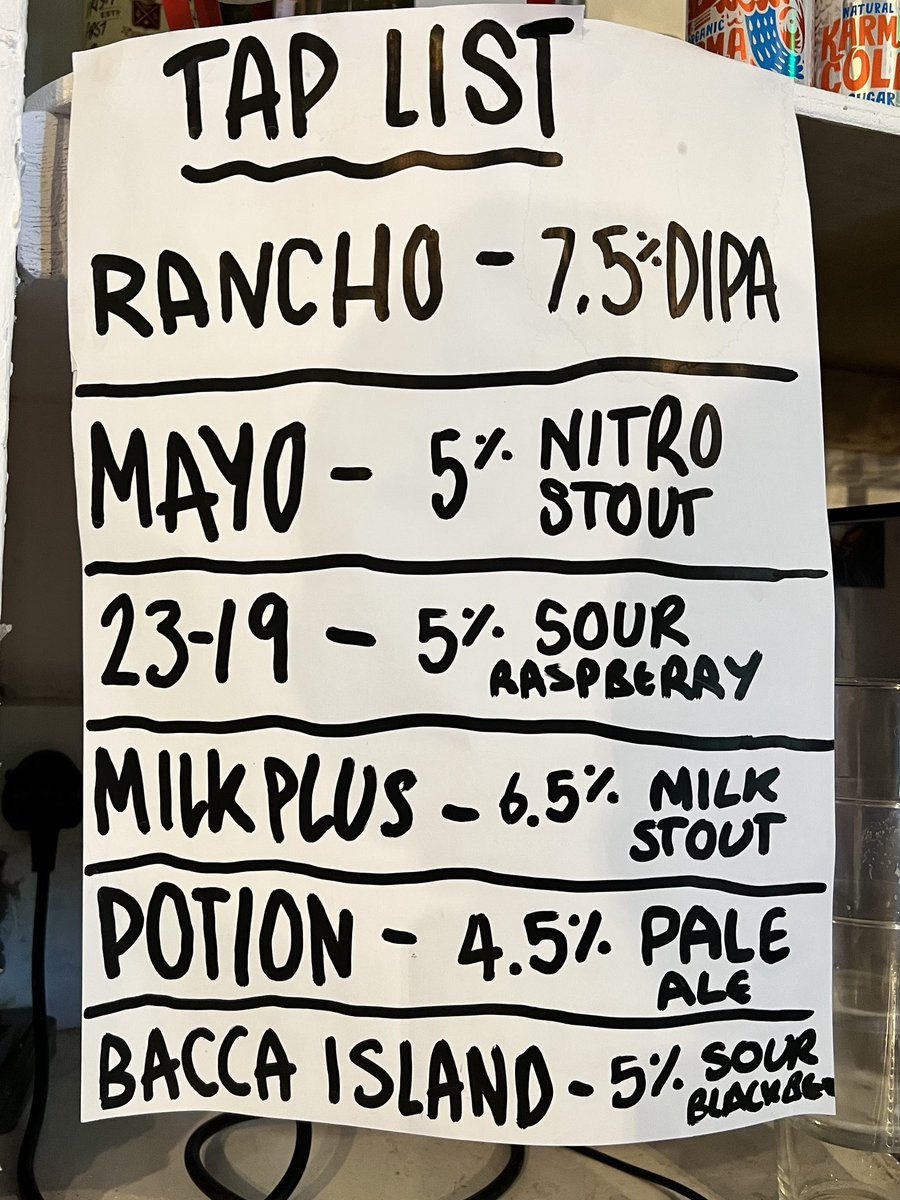 TAP LIST
RANCHO - 7.5% DIPA
MAYO - 5% NITRO
STOUT
23-19 - 5% SOUR
RASPBERRY
MILK PLUS - 6.5% MILK
STOUT
POTION - 4.5% PALE
ALE
BACCA ISLAND - 5% SOUR
NATURAL
KARM
COL
SUGAR